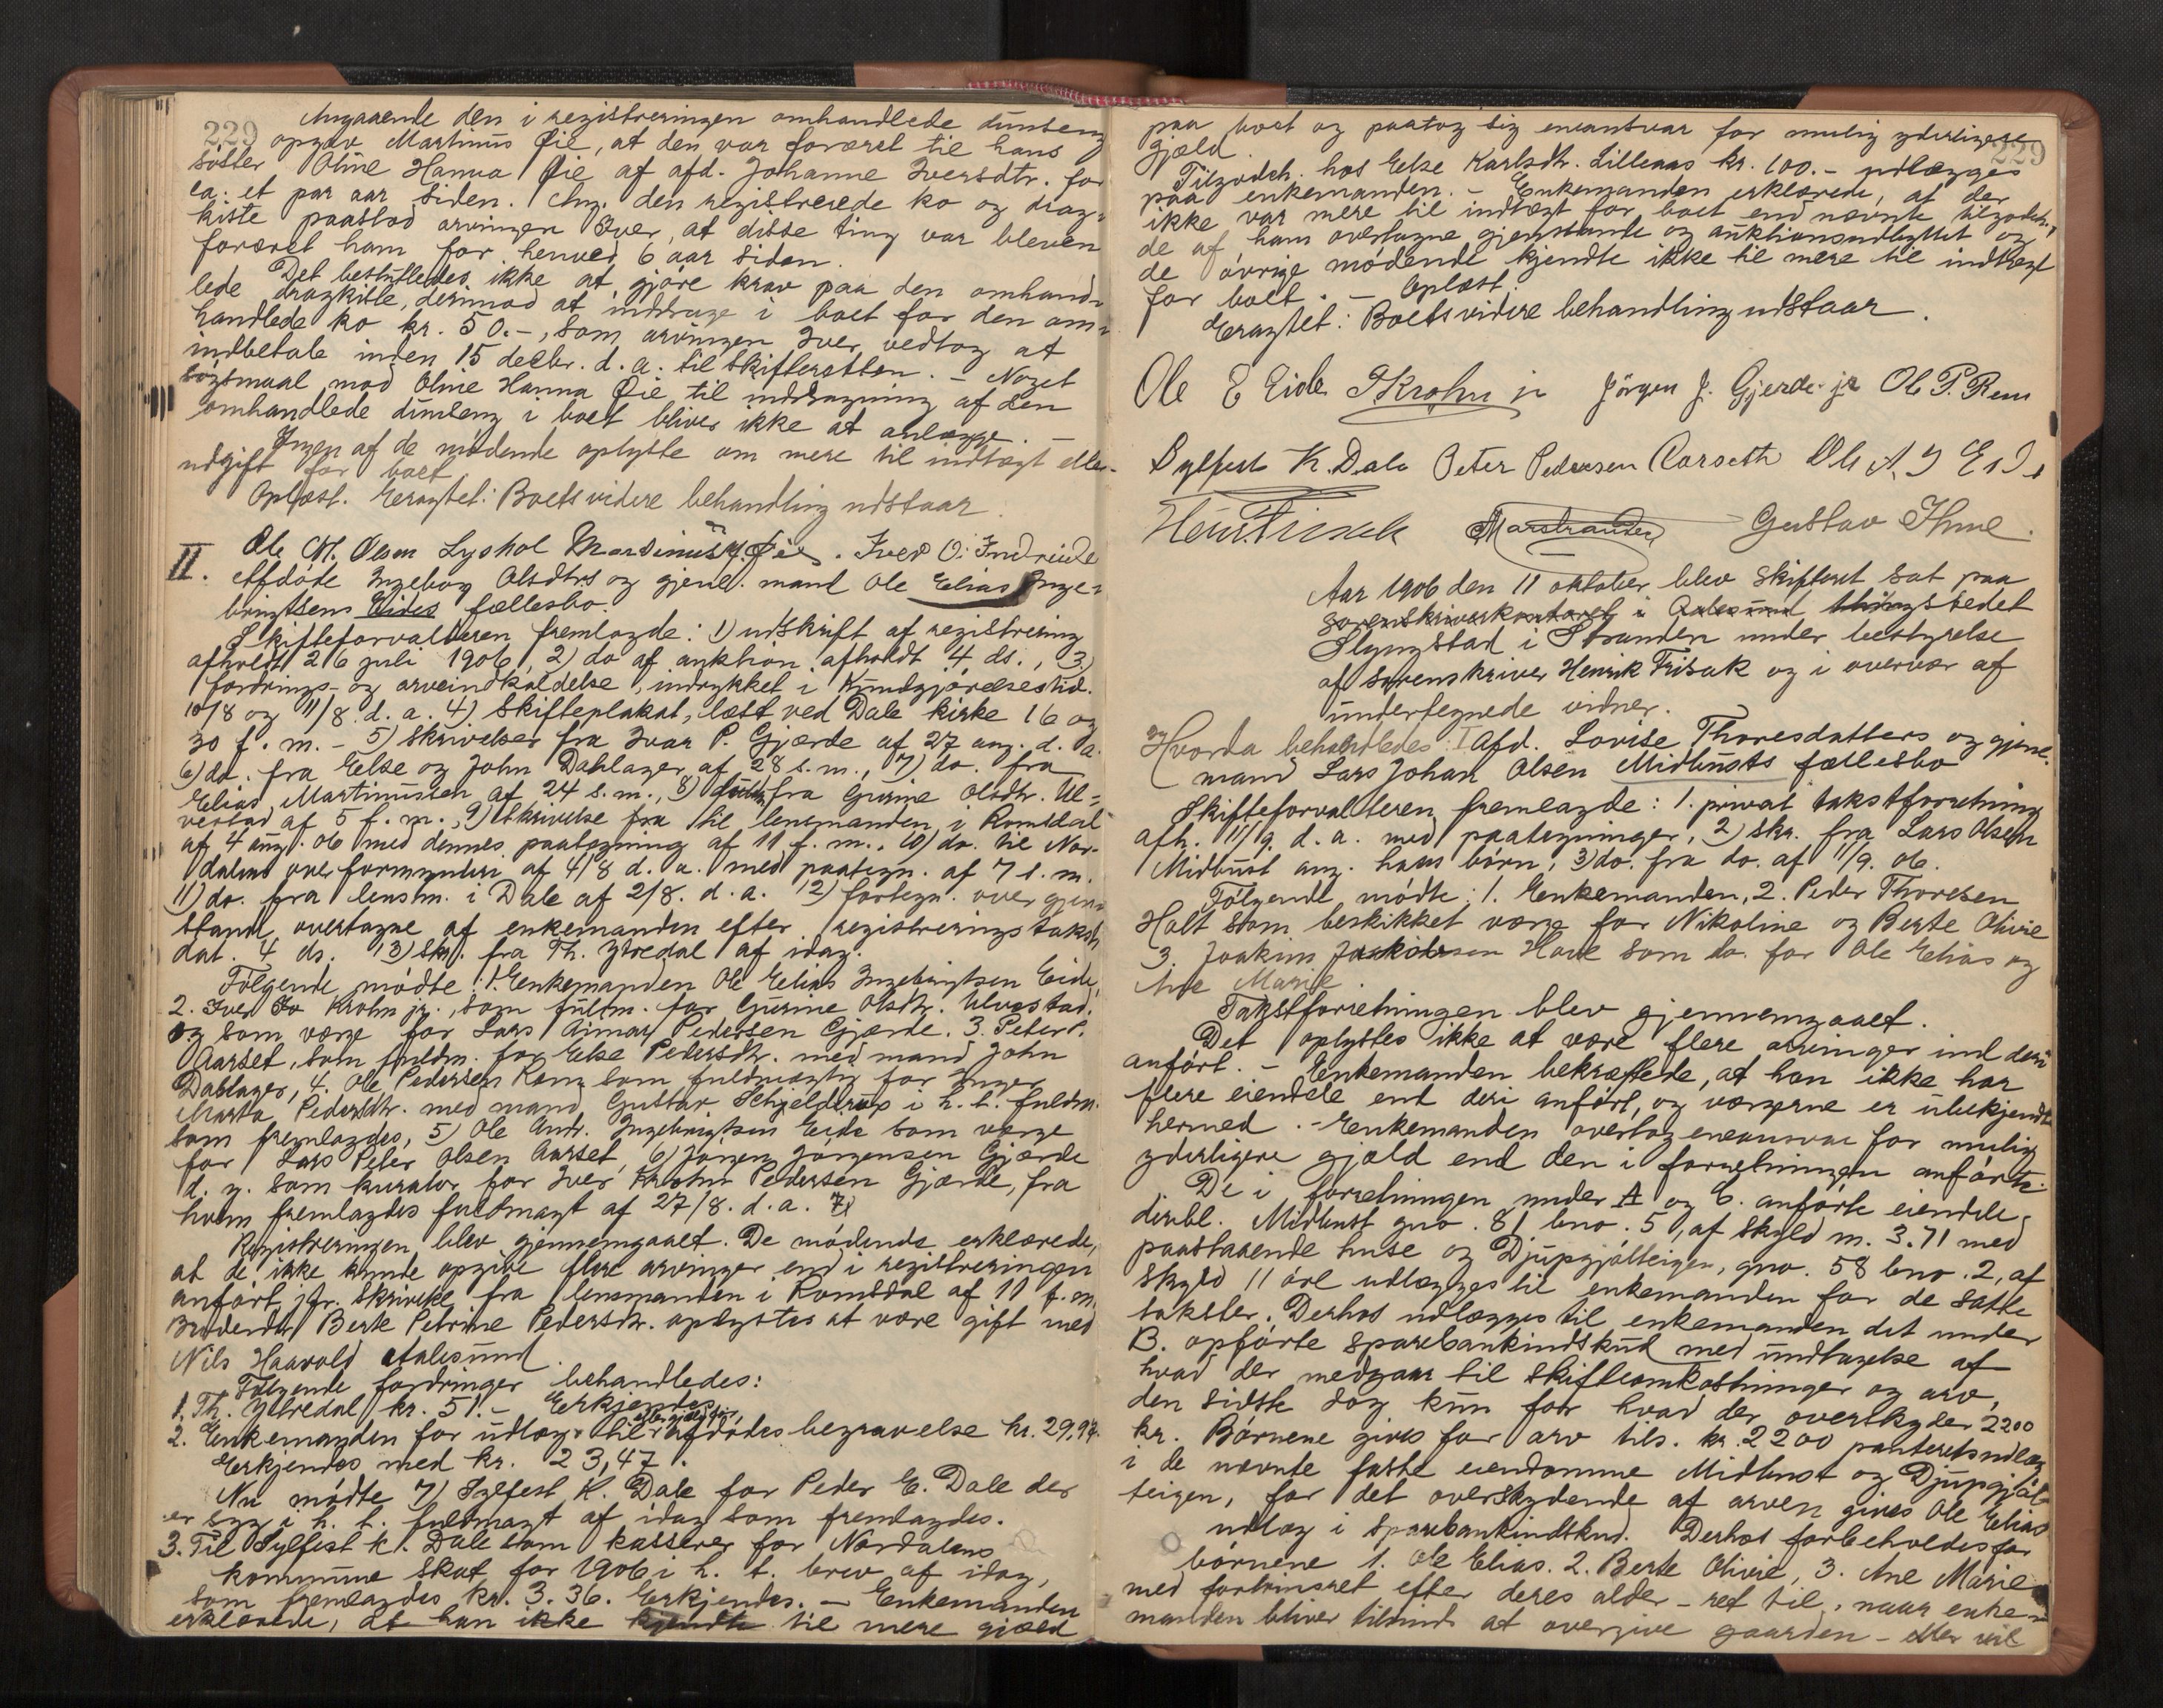 229
Angaaende den i registreringen omhandlede dunseng
opgav Martinus Øie, at den var foræret til hans
søster Oline Hanna Øie af afd. Johanne Iversdtr. for
ca. et par aar siden. Ang. den registrerede ko og drag-
kiste paastod arvingen Iver, at disse ting var bleven
foræret ham for henved 6 aar siden.
Det besluttedes ikke at gjøre krav paa den omhand-
lede dragkiste, derimod at inddrage i boet for den om-
handlede ko kr. 50.-, som arvingen Iver vedtog at
indbetale inden 15 decbr. d. a. til skifteretten. - Noget
søgsmaal mod Oline Hanna Øie til inddragning af den
omhandlede dunseng i boet bliver ikke at anlægge. -
Ingen af de mødende oplyste om mere til indtægt eller
udgift for boet
Oplæst. Eragtet: Boets videre behandling udstaar.
Ole M. Olsen Lyshol Martinus J. Øie. Iver O. Indreeide
II. Afdøde Ingeborg Olsdtrs og gjenl. mand Ole Elias Inge-
brigtsens Eides fællesbo.
Skifteforvalteren fremlagde: 1) udskrift af registrering
afholdt 26 juli 1906, 2) do af auktion afholdt 4 ds., 3)
fordrings- og arveindkaldelse, indrykket i Kundgjørelsestid.
10/8 og 11/8 d. a. 4) Skifteplakat, læst ved Dale kirke 16 og
30 f. m. - 5) skrivelser fra Ivar P. Gjærde af 27 aug. d. a.
6) do. fra Else og John Dahlager af 28 s. m., 7) do. fra
Elias Martinussen af 24 s. m., 8) fra Gurine Olsdtr. Ul-
vestad af 5 f. m., 9) skrivelse fra til lensmanden i Romsdal
af 4 aug. 06 med dennes paategning af 11 f. m., 10) do. til Nor-
dalens overformynderi af 4/8 d. a. med paategn. af 7 s. m.
11) do. fra lensm. i Dale af 2/8. d. a. 12) fortegn. over gjen-
stande overtagne af enkemanden efter registreringstakst,
dat. 4 ds. 13) Skr. fra Th. Ytredal af idag.
Følgende mødte: 1. Enkemanden Ole Elias Ingebrigtsen Eide,
2. Iver Krohn jr., som fuldm. for Gurine Olsdtr. Ulvestad,
og som værge for Lars Aimar Pedersen Gjærde. 3. Peter P.
Aarset, som fuldm. for Else Pedersdtr. med mand John
Dahlager, 4. Ole Pedersen Rem som fuldmægtig for Inger
Marta Pedersdtr. med mand Gustav Schjeldrup i h. t. fuldm.
som fremlagdes, 5) Ole Andr. Ingebrigtsen Eide som værge
for Lars Peter Olsen Aarset, 6) Jørgen Jørgensen Gjærde
d. y. som kurator for Iver Krohn Pedersen Gjærde, fra
hvem fremlagdes fuldmagt af 27/8. d. a. 7)
Registreringen blev gjennemgaaet. De mødende erklærede,
at de ikke kunde opgive flere arvinger end i registreringen
anført, jfr. skrivelse fra lensmanden i Romsdal af 11 f. m.
Broderdtr. Berte Petrine Pedersdtr. oplystes at være gift med
Nils Haavold Aalesund.
Følgende fordringer behandledes:
1. Th. Ytredal kr. 51.- Erkjendes
2. Enkemanden for udlæg til afdødes begravelse kr. 29,94.
Erkjendes med kr. 23,47.
Nu mødte 7) Sylfest K. Dale for Peder E. Dale der
er syg i h. t. fuldmagt af idag som fremlagdes.
3. Til Sylfest K. Dale som kasserer for Nordalens
kommune skat for 1906 i h. t. brev af idag,
som fremlagdes kr. 3.36. Erkjendes. - Enkemanden
erklærede, at han ikke kjendte til mere gjæld
229
paa boet og paatog sig eneansvar for mulig yderligere
gjæld.
Tilgodeh. hos Else Karlsdtr. Lilleaas kr. 100.- udlægges
paa enkemanden. - Enkemanden erklærede, at der
ikke var mere til indtægt for boet end nævnte tilgodeh.,
de af ham overtagne gjenstande og auktionsudbyttet og
de øvrige mødende kjendte ikke til mere til indtægt
for boet. - Oplæst.
Eragtet: Boets videre behandling udstaar.
Ole E Eide I Krohn jr Jørgen J. Gjerde jr Ole P. Rem
Sylfest K. Dale Peter Pedersen Aarseth Ole A. I Eide
Henr. Frisak Marstrander Gustav Thue.
Aar 1906 den 11 oktober blev skifteret sat paa
sorenskriverkontoret i Aalesund thingstedet
Slyngstad i Stranden under bestyrelse
af sorenskriver Henrik Frisak og i overvær af
undertegnede vidner.
Hvorda behandledes: I Afd. Lovise Thoresdatters og gjenl.
mand Lars Johan Olsen Midtbusts fællesbo
Skifteforvalteren fremlagde: 1. privat takstforretning
afh. 11/9. d. a. med paategninger, 2) skr. fra Lars Olsen
Midtbust ang. hans børn, 3) do. fra do. af 11/9. 06.
Følgende mødte: 1. Enkemanden, 2. Peder Thoresen
Holt som beskikket værge for Nikoline og Berte Olivie
3. Joakim Jakobsen Hove som do. for Ole Elias og
Ane Marie
Takstforretningen blev gjennemgaaet.
Det oplystes ikke at være flere arvinger end deri
anført. - Enkemanden bekræftede, at han ikke har
flere eiendele end deri anført, og værgerne er ubekjendt
hermed. - Enkemanden overtog eneansvar for mulig
yderligere gjæld end den i forretningen anførte.
De i forretningen under A og C. anførte eiendele,
Midtbust gno. 81 bno. 5, af skyld m. 3.71 med
paastaaende huse og Djupgjølteigen, gno. 58 bno. 2, af
skyld 11 øre udlægges til enkemanden for de satte
takster. Derhos udlægges til enkemanden det under
B. opførte sparebankindskud med undtagelse af
hvad der medgaar til skifteomkostninger og arv,
den sidste dog kun for hvad der overskyder 2200
kr. Børnene gives for arv tils. kr. 2200 panteretsudlæg
i de nævnte faste eiendomme Midtbust og Djupgjøl-
teigen, for det overskydende af arven gives Ole Elias
udlæg i sparebankindskud. Derhos forbeholdes for
børnene 1. Ole Elias. 2. Berte Olivie, 3. Ane Marie
med fortrinsret efter deres alder - ret til, naar enke-
manden bliver tilsinds at overgive gaarden - eller vil